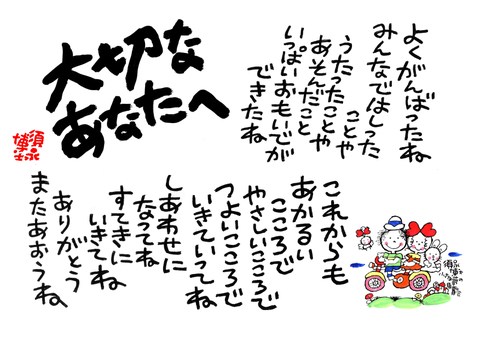 大切な
あなたへ
よくがんばったね
みんなではしった
ことや
うたったことや
あそんだこと
いっぱいおもいでが
できたね
これからも
あかるい
こころで
やさしいこころで
つよいこころで
いきていってね
しあわせに
なってね
すてきに
いきてね
ありがとう
またあおうね